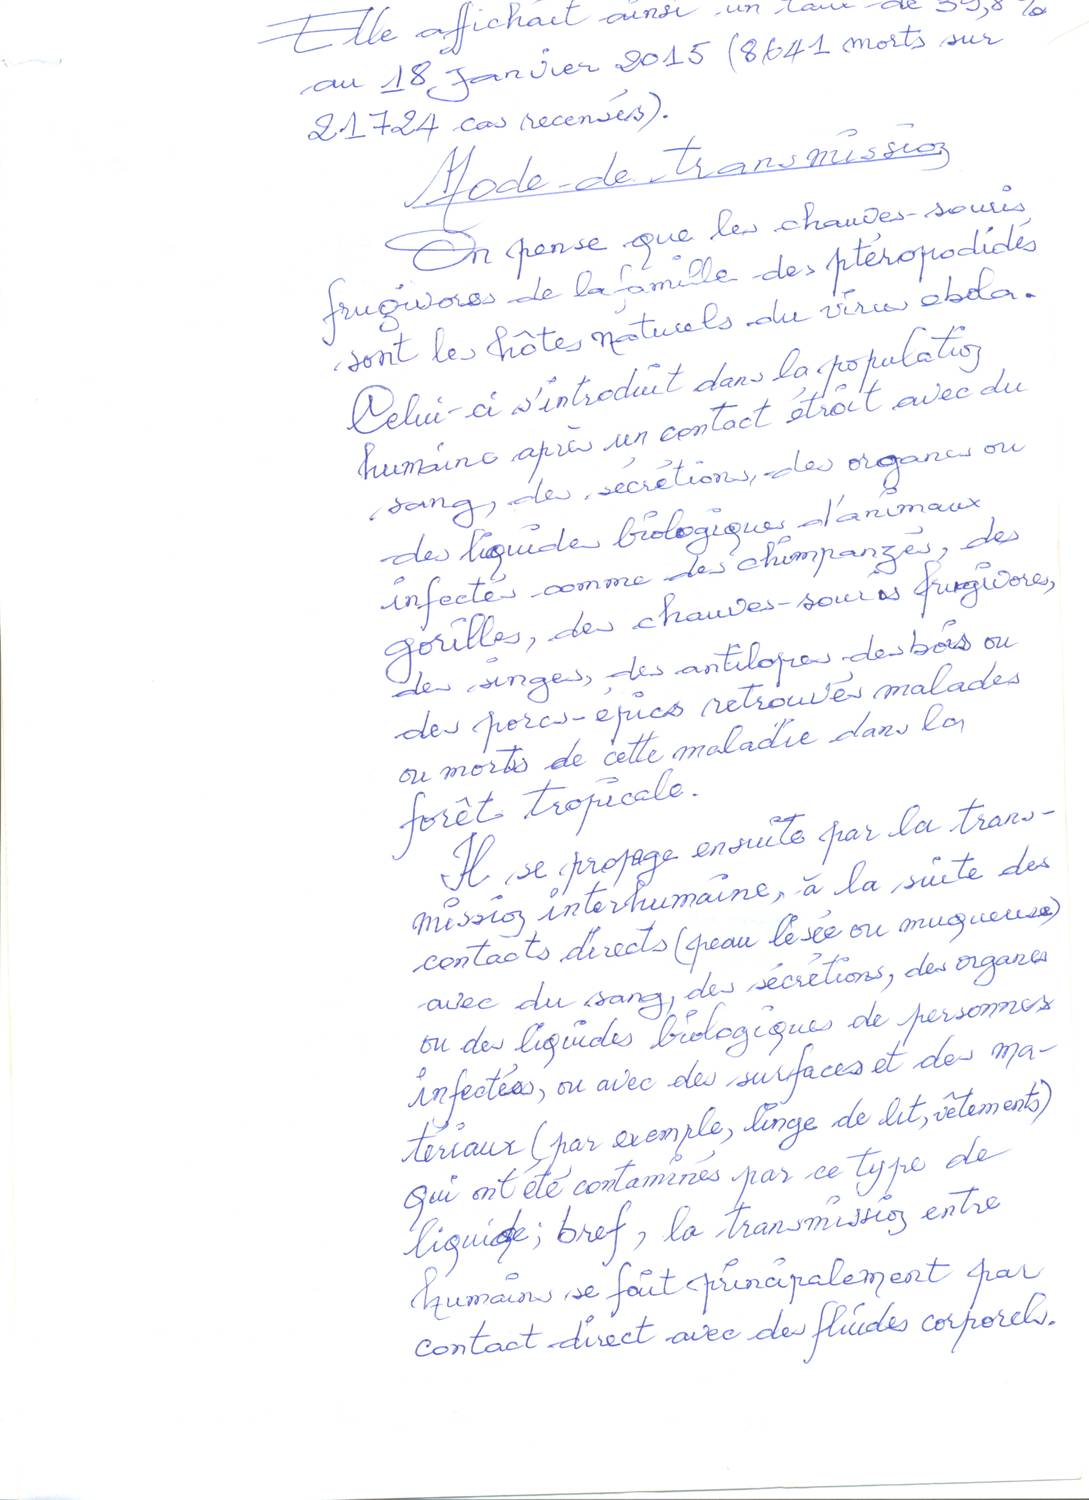 Elle affichait ainsi un taux de 39,8 %
au 18 Janvier 2015 (8641 morts sur
21724 cas recensés).
Mode de transmission
On pense que les chauves-souris
frugivores de la famille des ptéropodidés
sont les hôtes naturels du virus ebola.
Celui-ci s'introduit dans la population
humaine après un contact étroit avec du
sang, des sécrétions, des organes ou
des liquides biologiques d'animaux
infectés comme des chimpanzés, des
gorilles, des chauves-souris frugivores,
des singes, des antilopes des bois ou
des porcs-épics retrouvés malades
ou morts de cette maladie dans la
forêt tropicale.
Il se propage ensuite par la trans-
mission interhumaine, à la suite des
contacts directs (peau lésée ou muqueuse)
avec du sang, des sécrétions, des organes
ou des liquides biologiques de personnes
infectées, ou avec des surfaces et des ma-
tériaux (par exemple, linge de lit, vêtements)
qui ont été contaminés par ce type de
liquide; bref, la transmission entre
humains se fait principalement par
contact direct avec des fluides corporels.